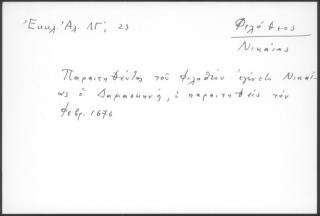 Ἐκκλ. Ἀλ. ΛΓ', 23
Φιλόθεος
Νικαίας
Παραιτηθέντος τοῦ Φιλοθέου ἐγένετο Νικαί-
ας ὁ Δαμασκηνός, ὁ παραιτηθείς τὸν
Φεβρ. 1676